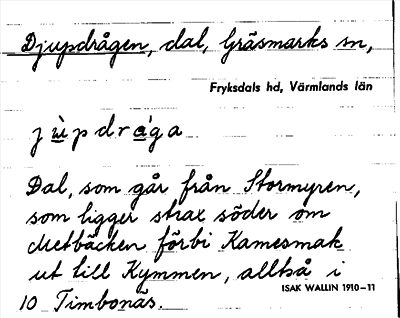 Djupdrågen, dal, Gräsmarks sn,
Fryksdals hd, Värmlands län
jùpdrága
Dal, som går från Stormyren,
som ligger strax söder om
Metbäcken förbi Kamesmak
ut till Kymmen, alltså i
10 Timbonäs.
ISAK WALLIN 1910-11